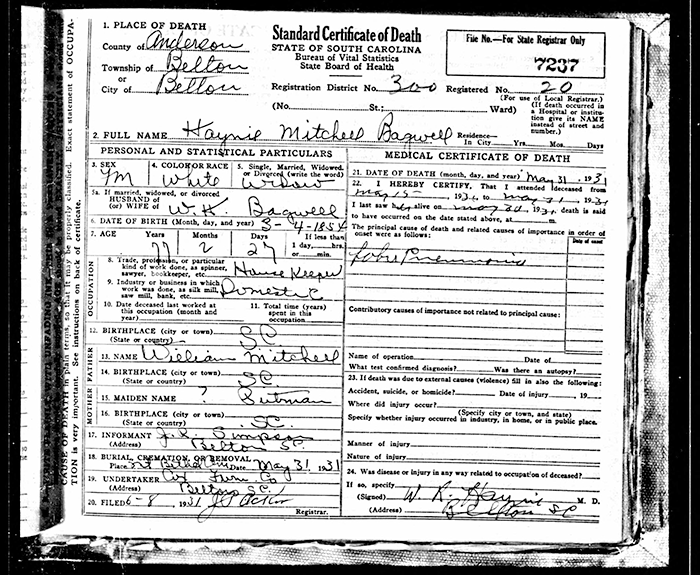 1. PLACE OF DEATH
County of Anderson
Township of Belton
or
City of Belton
Standard Certificate of Death
STATE OF SOUTH CAROLINA
Bureau of Vital Statistics
State Board of Health
File No.—For State Registrar Only
7237
Registration District No. 300 Registered No. 20
(For use of Local Registrar.)
(No. St.; Ward)
(If death occurred in
a Hospital or institu-
tion give its NAME
instead of street and
number.)
2. FULL NAME Haynie Mitchell Bagwell Residence—
In City Yrs. Mos. Days
PERSONAL AND STATISTICAL PARTICULARS
3. SEX 4. COLOR OR RACE 5. Single, Married, Widowed,
or Divorced (write the word)
White Widow
5a If married, widowed, or divorced
HUSBAND of
(or) WIFE of W. K. Bagwell
6. DATE OF BIRTH (Month, day, and year) 3-4-1854
7. AGE Years Months Days If less than
1 day hrs.
or min.
77 2 27
OCCUPATION
8. Trade, profession, or particular
kind of work done, as spinner,
sawyer, bookkeeper, etc. House Keeper
9. Industry or business in which
work was done, as silk mill,
saw mill, bank, etc. Domestic
10. Date deceased last worked at
this occupation (month and
year)
11. Total time (years)
spent in this
occupation
12. BIRTHPLACE (city or town) SC
(State or country)
FATHER
13. NAME William Mitchell
14. BIRTHPLACE (city or town) SC
(State or country)
MOTHER
15. MAIDEN NAME ? Putman
16. BIRTHPLACE (city or town) SC.
(State or country)
17. INFORMANT Simpson
(Address) Belton SC.
18. BURIAL, CREMATION, OR REMOVAL
Place Date May 31 1931
19. UNDERTAKER Cox Furn. Co
(Address) Belton SC
20. FILED 6-8, 1931
Registrar.
MEDICAL CERTIFICATE OF DEATH
21. DATE OF DEATH (month, day, and year) May 31, 1931
22. I HEREBY CERTIFY, That I attended deceased from
May 15, 1931, to May 31, 1931
I last saw alive on May 30, 1931, death is said
to have occurred on the date stated above, at m.
The principal cause of death and related causes of importance in order of
onset were as follows:
Date of onset
Lobar Pneumonia
Contributory causes of importance not related to principal cause:
Name of operation Date of
What test confirmed diagnosis? Was there an autopsy?
23. If death was due to external causes (violence) fill in also the following:
Accident, suicide, or homicide? Date of injury 19
Where did injury occur?
(Specify city or town, and state)
Specify whether injury occurred in industry, in home, or in public place.
Manner of injury
Nature of injury
24. Was disease or injury in any way related to occupation of deceased?
If so, specify
(Signed) W. R. Haynie M. D.
(Address) Belton SC
CAUSE OF DEATH in plain terms, so that it may be properly classified. Exact statement of OCCUPA-
TION is very important. See instructions on back of certificate.